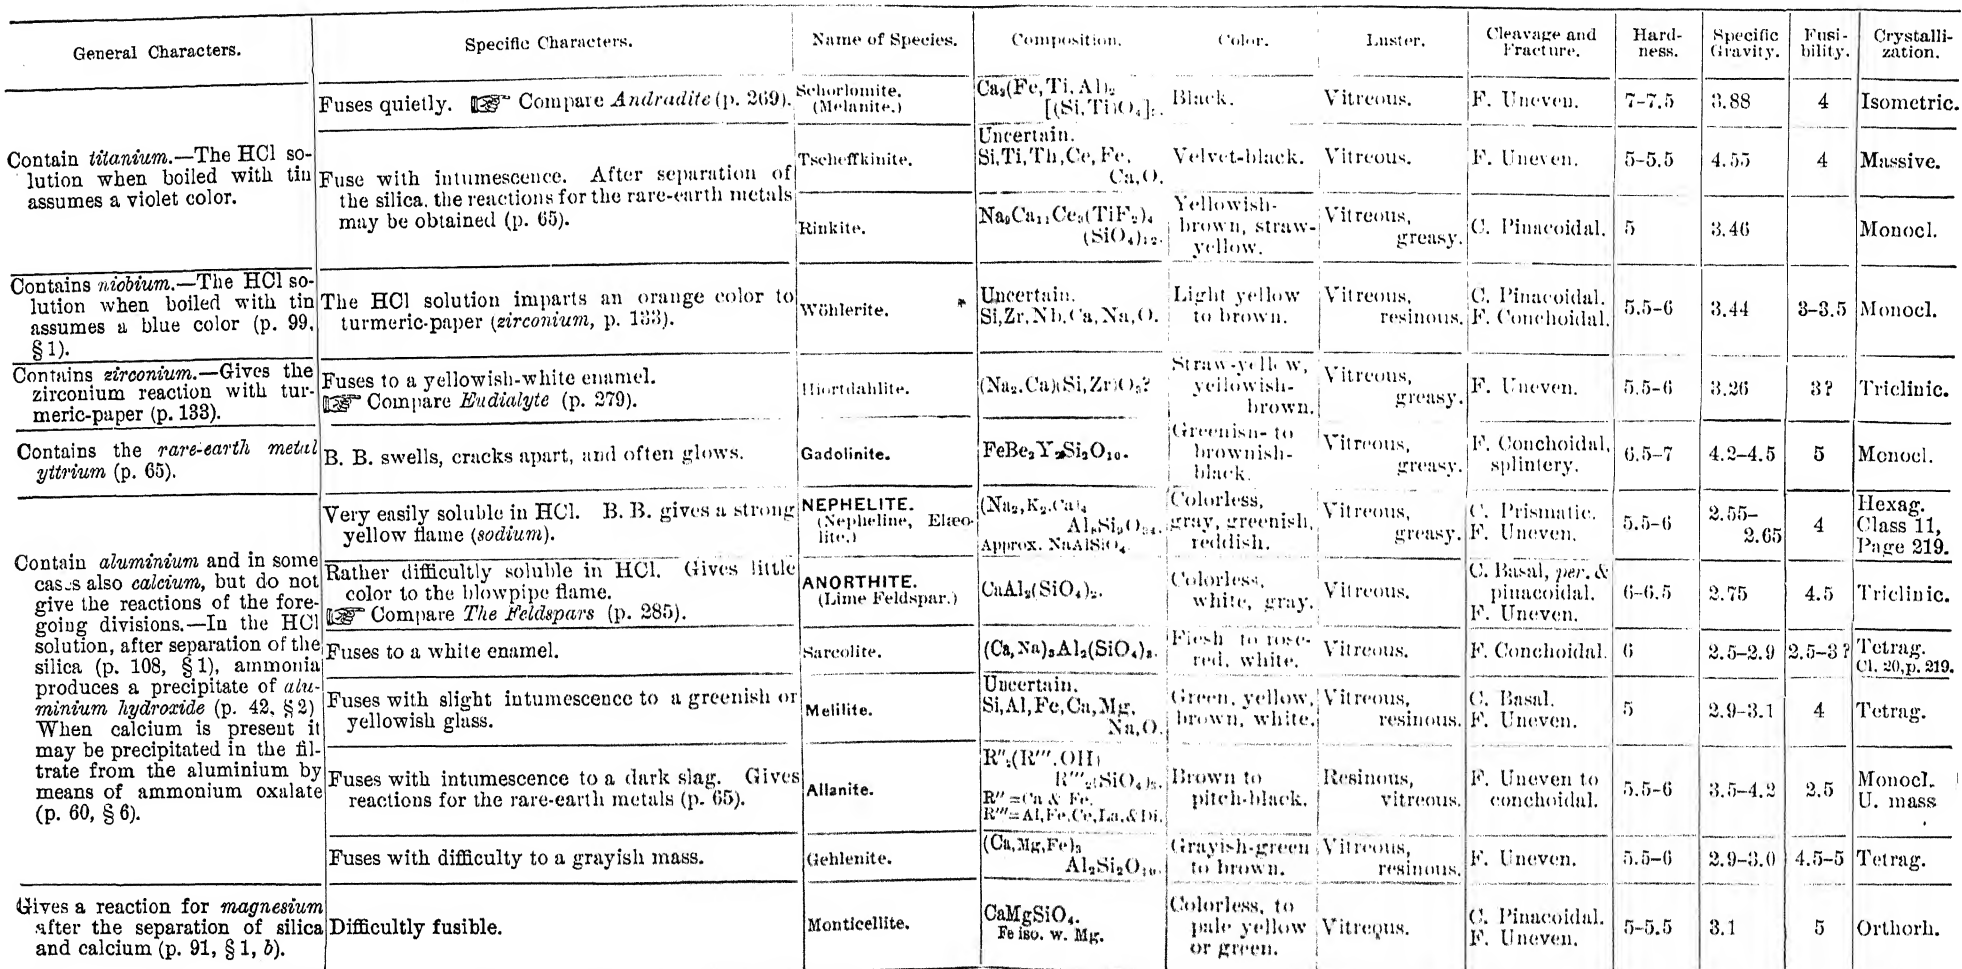 General Characters. Specific Characters. Name of Species. Composition. Color. Luster. Cleavage and Fracture. Hardness. Specific Gravity. Fusibility. Crystallization.
Contain titanium.—The HCl so-
lution when boiled with tin
assumes a violet color.
Fuses quietly. ☞ Compare Andradite (p. 269).
Schorlomite.
(Melanite.)
Ca₃(Fe, Ti, Al)₂
[(Si, Ti)O₄]₃.
Black.
Vitreous.
F. Uneven.
7–7.5
3.88
4
Isometric.
Fuse with intumescence. After separation of
the silica, the reactions for the rare-earth metals
may be obtained (p. 65).
Tscheffkinite.
Uncertain.
Si, Ti, Th, Ce, Fe,
Ca, O.
Velvet-black.
Vitreous.
F. Uneven.
5–5.5
4.55
4
Massive.
Rinkite.
Na₉Ca₁₁Ce₃(TiF₂)₄
(SiO₄)₁₂.
Yellowish-
brown, straw-
yellow.
Vitreous,
greasy.
C. Pinacoidal.
5
3.46
Monocl.
Contains niobium.—The HCl so-
lution when boiled with tin
assumes a blue color (p. 99,
§ 1).
The HCl solution imparts an orange color to
turmeric-paper (zirconium, p. 133).
Wöhlerite.
Uncertain.
Si, Zr, Nb, Ca, Na, O.
Light yellow
to brown.
Vitreous,
resinous.
C. Pinacoidal.
F. Conchoidal.
5.5–6
3.44
3–3.5
Monocl.
Contains zirconium.—Gives the
zirconium reaction with tur-
meric-paper (p. 133).
Fuses to a yellowish-white enamel.
☞ Compare Eudialyte (p. 279).
Hiortdahlite.
(Na₂, Ca)(Si, Zr)O₃?
Straw-yellow,
yellowish-
brown.
Vitreous,
greasy.
F. Uneven.
5.5–6
3.26
3?
Triclinic.
Contains the rare-earth metal
yttrium (p. 65).
B. B. swells, cracks apart, and often glows.
Gadolinite.
FeBe₂Y₂Si₂O₁₀.
Greenish- to
brownish-
black.
Vitreous,
greasy.
F. Conchoidal,
splintery.
6.5–7
4.2–4.5
5
Monocl.
Contain aluminium and in some
cases also calcium, but do not
give the reactions of the fore-
going divisions.—In the HCl
solution, after separation of the
silica (p. 108, § 1), ammonia
produces a precipitate of alu-
minium hydroxide (p. 42, § 2)
When calcium is present it
may be precipitated in the fil-
trate from the aluminium by
means of ammonium oxalate
(p. 60, § 6).
Very easily soluble in HCl. B. B. gives a strong
yellow flame (sodium).
NEPHELITE.
(Nepheline, Elæo-
lite.)
(Na₂, K₂, Ca)₄
Al₈Si₉O₃₄.
Approx. NaAlSiO₄.
Colorless,
gray, greenish,
reddish.
Vitreous,
greasy.
C. Prismatic.
F. Uneven.
5.5–6
2.55–
2.65
4
Hexag.
Class 11,
Page 219.
Rather difficultly soluble in HCl. Gives little
color to the blowpipe flame.
☞ Compare The Feldspars (p. 285).
ANORTHITE.
(Lime Feldspar.)
CaAl₂(SiO₄)₂.
Colorless,
white, gray.
Vitreous.
C. Basal, per. &
pinacoidal.
F. Uneven.
6–6.5
2.75
4.5
Triclinic.
Fuses to a white enamel.
Sarcolite.
(Ca, Na)₃Al₂(SiO₄)₃.
Flesh to rose-
red, white.
Vitreous.
F. Conchoidal.
6
2.5–2.9
2.5–3?
Tetrag.
Cl. 20, p. 219.
Fuses with slight intumescence to a greenish or
yellowish glass.
Melilite.
Uncertain.
Si, Al, Fe, Ca, Mg,
Na, O.
Green, yellow,
brown, white.
Vitreous,
resinous.
C. Basal.
F. Uneven.
5
2.9–3.1
4
Tetrag.
Fuses with intumescence to a dark slag. Gives
reactions for the rare-earth metals (p. 65).
Allanite.
R″₂(R‴.OH)
R‴₂(SiO₄)₃.
R″ = Ca & Fe.
R‴ = Al, Fe, Ce, La, & Di.
Brown to
pitch-black.
Resinous,
vitreous.
F. Uneven to
conchoidal.
5.5–6
3.5–4.2
2.5
Monocl.
U. mass
Fuses with difficulty to a grayish mass.
Gehlenite.
(Ca, Mg, Fe)₃
Al₂Si₂O₁₀.
Grayish-green
to brown.
Vitreous,
resinous.
F. Uneven.
5.5–6
2.9–3.0
4.5–5
Tetrag.
Gives a reaction for magnesium
after the separation of silica
and calcium (p. 91, § 1, b).
Difficultly fusible.
Monticellite.
CaMgSiO₄.
Fe iso. w. Mg.
Colorless, to
pale yellow
or green.
Vitreous.
C. Pinacoidal.
F. Uneven.
5–5.5
3.1
5
Orthorh.